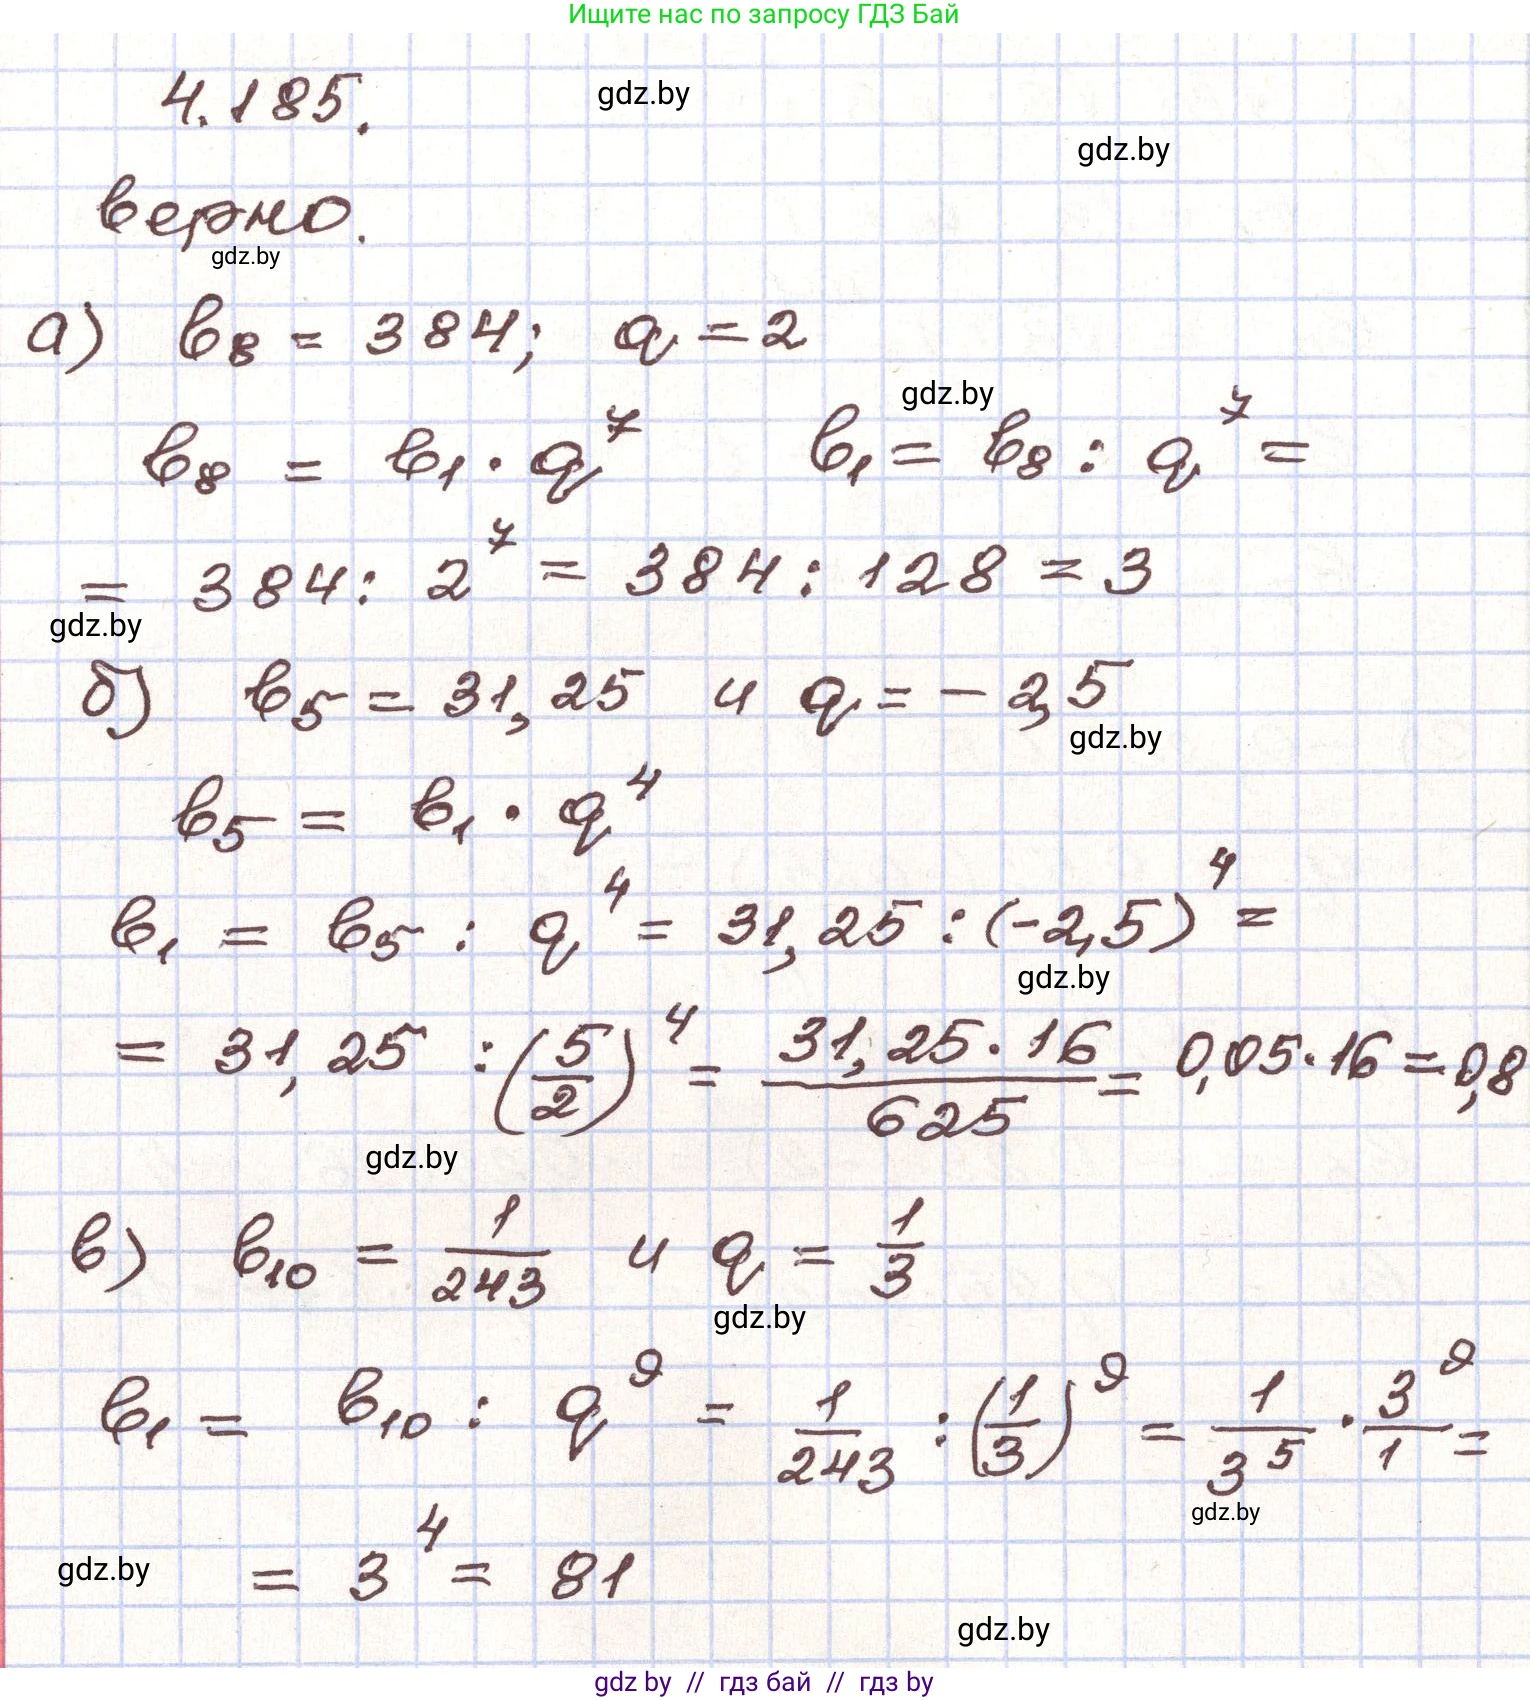 Ищите нас по запросу ГДЗ Бай
4.185.
gdz.by
gdz.by
верно.
gdz.by
а) b₈ = 384; q = 2
gdz.by
b₈ = b₁ · q⁷ b₁ = b₈ : q⁷ =
= 384 : 2⁷ = 384 : 128 = 3
gdz.by
б) b₅ = 31,25 и q = −2,5
gdz.by
b₅ = b₁ · q⁴
b₁ = b₅ : q⁴ = 31,25 : (−2,5)⁴ =
gdz.by
= 31,25 : (5/2)⁴ = 31,25 · 16 / 625 = 0,05 · 16 = 0,8
gdz.by
в) b₁₀ = 1/243 и q = 1/3
gdz.by
b₁ = b₁₀ : q⁹ = 1/243 : (1/3)⁹ = 1/3⁵ · 3⁹/1 =
gdz.by
= 3⁴ = 81
gdz.by
gdz.by
gdz by // гдз бай // gdz by